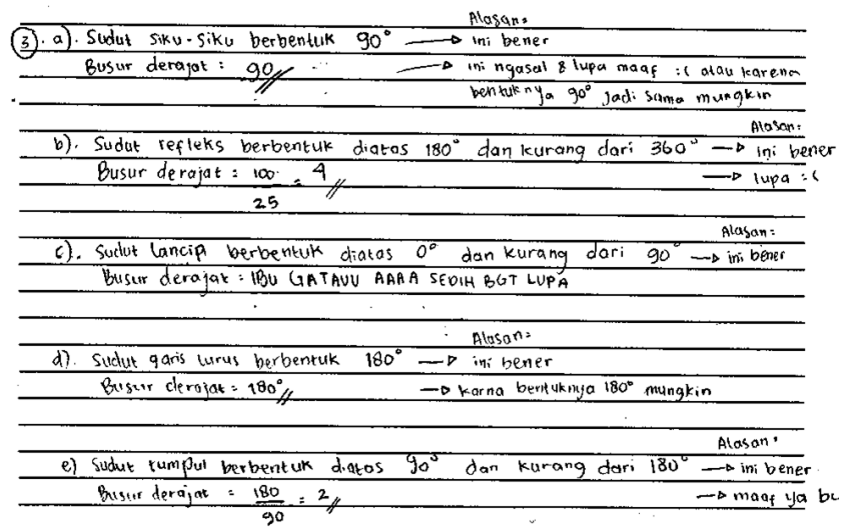 Alasan:
3. a). Sudut siku-siku berbentuk 90° → ini bener
Busur derajat : 90 → ini ngasal & lupa maaf :( atau karena
bentuknya 90° jadi sama mungkin
Alasan:
b). Sudut refleks berbentuk diatas 180° dan kurang dari 360° → ini bener
Busur derajat : 100 = 4 → lupa :(
25
Alasan:
c). Sudut lancip berbentuk diatas 0° dan kurang dari 90° → ini bener
Busur derajat : IBU GATAUU AAAA SEDIH BGT LUPA
Alasan:
d). Sudut garis lurus berbentuk 180° → ini bener
Busur derajat = 180° → karna bentuknya 180° mungkin
Alasan:
e) Sudut tumpul berbentuk diatas 90° dan kurang dari 180° → ini bener
Busur derajat = 180 = 2 → maaf ya bu
90